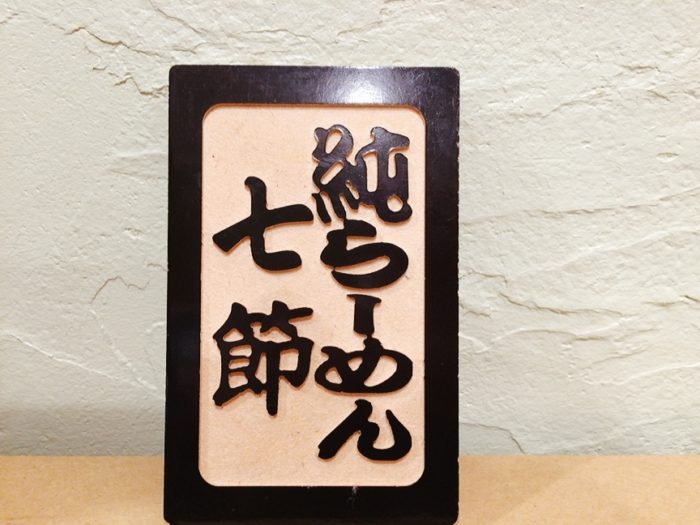 純らーめん
七節